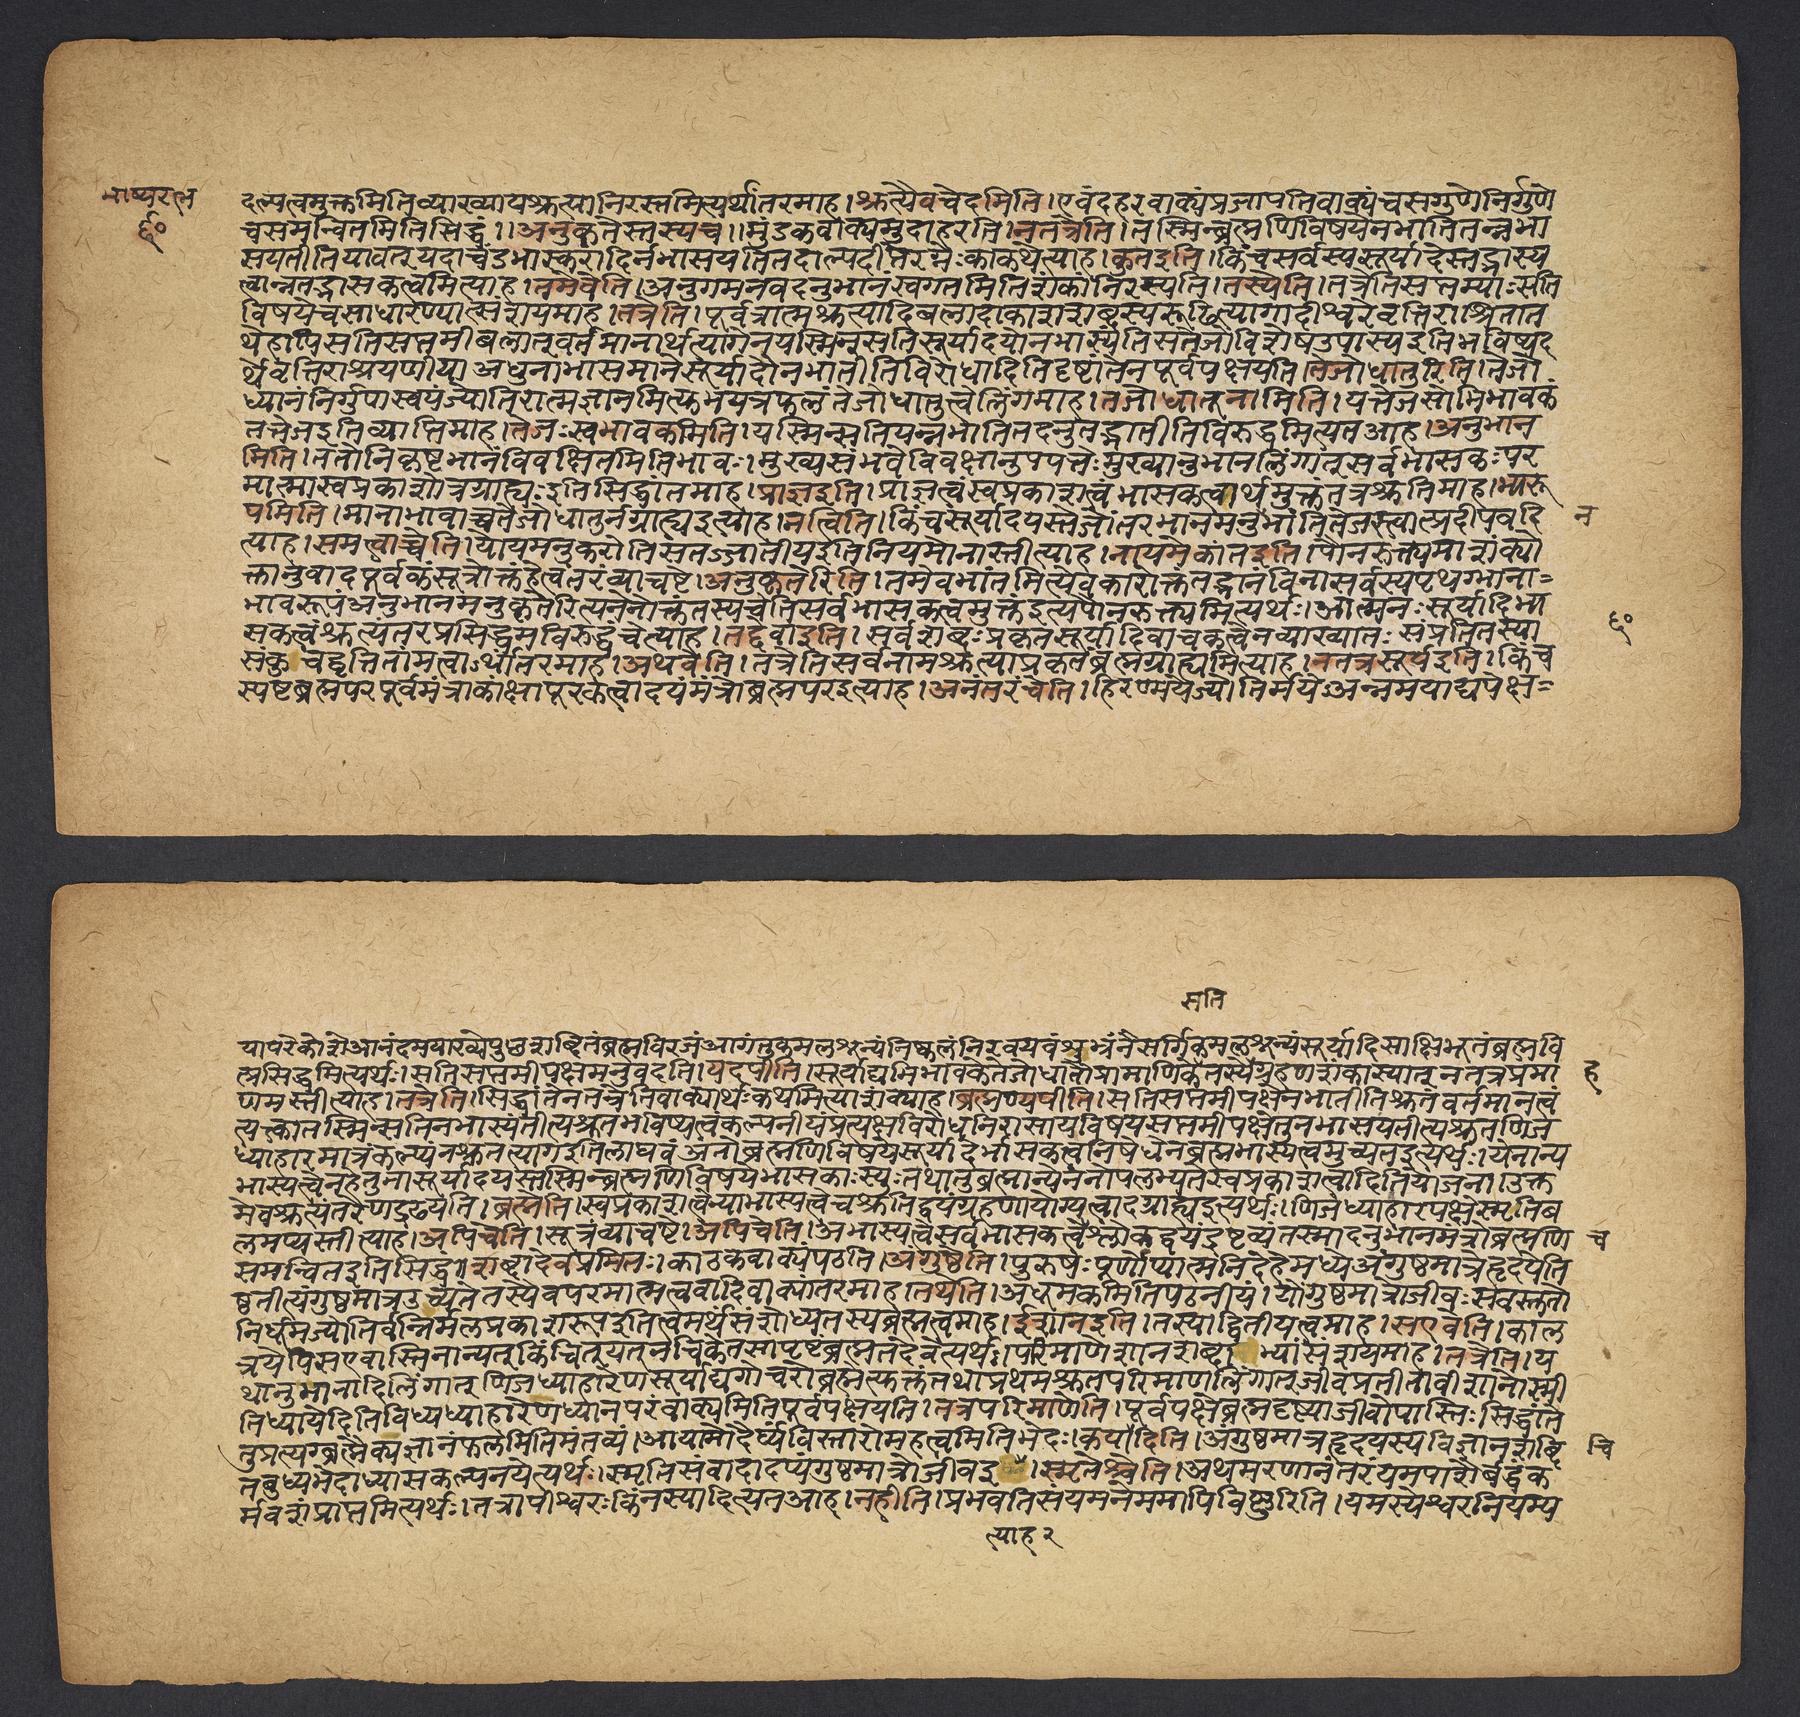 भाष्यरत्न
६०
दल्पत्वमुक्तमितिव्याख्यायश्रुत्यानिरस्तमित्यर्थांतरमाह।श्रुत्यैवचेदमिति।एवंदहरवाक्यंप्रजापतिवाक्यंचसगुणेनिर्गुणे
चसमन्वितमितिसिद्धं।।अनुकृतेस्तस्यच।।मुंडकवाक्यमुदाहरति।नतत्रेति।तस्मिन्ब्रह्मणिविषयेनभातितन्नभा
सयतीतियावत्यदाचंडभास्करादिर्नभासयतितदाल्पदीप्तिरग्नेःकाकथेत्याह।कुतइति।किंचसर्वस्यसूर्यादेस्तद्भास्य
त्वान्नतद्भासकत्वमित्याह।तमेवेति।अनुगमनवदनुभानंस्वगतमितिशंकांनिरस्यति।तस्येति।तत्रेतिसप्तम्याःसति
विषयेचसाधारण्यात्संशयमाह।तत्रेति।पूर्वत्रात्मश्रुत्यादिबलादाकाशशब्दस्यरूढित्यागादीश्वरेवृत्तिराश्रितात
थेहापिसतिसप्तमीबलात्वर्तमानार्थत्यागेनयस्मिन्सतिसूर्यादयोनभास्यंतिसतेजोविशेषउपास्यइतिभविष्यद
र्थेवृत्तिराश्रयणीया अधुनाभासमानेसूर्यादौनभातीतिविरोधादितिदृष्टांतेनपूर्वपक्षयति।तेजोधातुरिति।तेजो
ध्यानंनिर्गुणस्वयंज्योतिरात्मज्ञानमित्युभयत्रफलंतेजोधातुत्वेलिंगमाह।तेजोधातूनामिति।यत्तेजसोभिभावकं
तत्तेजइतिव्याप्तिमाह।तेजःस्वभावकमिति।यस्मिन्सतियन्नभातितदनुतद्भातीतिविरुद्धमित्यतआह।अनुभान
मिति।ततोनिकृष्टभानंविवक्षितमितिभावः।मुख्यसंभवेविवक्षानुपपत्तेःमुख्यानुभानलिंगात्सर्वभासकःपर
मात्मास्वप्रकाशोत्रग्राह्यःइतिसिद्धांतमाह।प्राज्ञइति।प्राज्ञत्वंस्वप्रकाशत्वंभासकत्वार्थमुक्तंतत्रश्रुतिमाह।भारू
पमिति।मानाभावाच्चतेजोधातुर्नग्राह्यइत्याह।नत्विति।किंचसूर्यादयस्तेजोंतरभानमनुभांतितेजस्त्वात्प्रदीपवदि
न
त्याह।समत्वाच्चेति।योयमनुकरोतिसतज्जातीयइतिनियमोनास्तीत्याह।नायमेकांतइति।पौनरुक्त्यमाशंक्यो
क्तानुवादपूर्वकंसूत्रोक्तंहेत्वंतरंव्याचष्टे।अनुकृतेरिति।तमेवभांतमित्येवकारोक्तंतद्भानंविनासर्वस्यपृथग्भाना
भावरूपंअनुभानमनुकृतेरित्यनेनोक्तंतस्यचेतिसर्वभासकत्वमुक्तंइत्यपौनरुक्त्यमित्यर्थः।आत्मनःसूर्यादिभा
६०
सकत्वंश्रुत्यंतरप्रसिद्धमविरुद्धंचेत्याह।तद्देवाइति।सर्वशब्दःप्रकृतसूर्यादिवाचकत्वेनव्याख्यातःसंप्रतितस्या
संकुचद्वृत्तितांमत्वाऽर्थांतरमाह।अथवेति।तत्रेतिसर्वनामश्रुत्याप्रकृतंब्रह्मग्राह्यमित्याह।नतत्रसूर्यइति।किंच
स्पष्टब्रह्मपरपूर्वमंत्राकांक्षापूरकत्वादयंमंत्रोब्रह्मपरइत्याह।अनंतरंचेति।हिरण्मयेज्योतिर्मयेअन्नमयाद्यपेक्ष
सति
यापरेकोशेआनंदमयाख्येपुच्छशब्दितंब्रह्मविरजंआगंतुकमलशून्यंनिष्कलंनिरवयवंशुभ्रंनैसर्गिकमलशून्यंसूर्यादिसाक्षिभूतंब्रह्मवि
त्प्रसिद्धमित्यर्थः।सतिसप्तमीपक्षमनुवदति।यदपीति।सूर्याद्यभिभावकतेजोधातौप्रामाणिकेतस्येग्रहणशंकास्यात्नतत्रप्रमा
ह
णमस्तीत्याह।तत्रेति।सिद्धांतेनतत्रेतिवाक्यार्थःकथमित्याशंक्याह।ब्रह्मण्यपीति।सतिसप्तमीपक्षेनभातीतिश्रुतंवर्तमानत्वं
त्यक्त्कातस्मिन्सतिनभास्यंतीत्यश्रुतभविष्यत्वंकल्पनीयंप्रत्यक्षविरोधनिरासायविषयसप्तमीपक्षेतुनभासयतीत्यश्रुतणिज
ध्याहारमात्रंकल्प्यंनश्रुतत्यागइतिलाघवं अतोब्रह्मणिविषयेसूर्यादेर्भासकत्वनिषेधेनब्रह्मभास्यत्वमुच्यतइत्यर्थः।येनान्य
भास्यत्वेनहेतुनासूर्यादयस्तस्मिन्ब्रह्मणिविषयेभासकाःस्युःतथातुब्रह्मान्येननोपलभ्यतेस्वप्रकाशत्वादितियोजना।उक्त
मेवश्रुत्यंतरेणद्रढयति।ब्रह्मेति।स्वप्रकाशत्वेन्याभास्यत्वेचश्रुतिद्वयंग्रहणायोग्यत्वादग्राह्यइत्यर्थः।णिजध्याहारपक्षेस्मृतिब
लमप्यस्तीत्याह।अपिचेति।सूत्रंव्याचष्टे।अपिचेति।अभास्यत्वेसर्वभासकत्वेश्लोकद्वयंद्रष्टव्यंतस्मादनुभानमंत्रोब्रह्मणि
च
समन्वितइतिसिद्धं।शब्दादेवप्रमितः।काठकवाक्यंपठति।अंगुष्ठेति।पुरुषःपूर्णोप्यात्मनिदेहेमध्येअंगुष्ठमात्रेहृदयेति
ष्ठतीत्यंगुष्ठमात्रउच्यतेतस्यैवपरमात्मत्ववादिवाक्यांतरमाह।तथेति।अधूमकमितिपठनीयं।योंगुष्ठमात्रोजीवःसवस्तुतो
निर्धूमज्योतिर्वन्निर्मलप्रकाशरूपइतित्वमर्थंसंशोध्यतस्यब्रह्मत्वमाह।ईशानइति।तस्याद्वितीयत्वमाह।सएवेति।काल
त्रयेपिसएवास्तिनान्यत्किंचित्यत्नचिकेतसापृष्टंब्रह्मतदेवेत्यर्थः।परिमाणेशानशब्दाभ्यांसंशयमाह।तत्रेति।य
थानुभानादिलिंगात्णिजध्याहारेणसूर्याद्यगोचरोब्रह्मेत्युक्तंतथाप्रथमश्रुतपरिमाणलिंगात्जीवप्रतीतावीशानोस्मी
तिध्यायेदितिविध्यध्याहारेणध्यानपरंवाक्यमितिपूर्वपक्षयति।तत्रपरिमाणेति।पूर्वपक्षेब्रह्मदृष्ट्याजीवोपास्तिःसिद्धांते
तुप्रत्यग्ब्रह्मैक्यज्ञानंफलमितिमंतव्यं।आयामोदैर्घ्यंविस्तारोमहत्वमितिभेदः।कयाेदिति।अंगुष्ठमात्रहृदयस्यविज्ञानशब्दि
चि
तबुध्यभेदाध्यासकल्पनयेत्यर्थः।स्मृतिसंवादादप्यंगुष्ठमात्रोजीवइ।स्मृतेश्चेति।अथमरणानंतरंयमपाशैर्बद्धंक
र्मवशंप्राप्तमित्यर्थः।तत्रापीश्वरःकिंनस्यादित्यतआह।नहीति।प्रभवतिसंयमनेममापिविष्णुरिति।यमस्येश्वरनियम्य
त्याह२